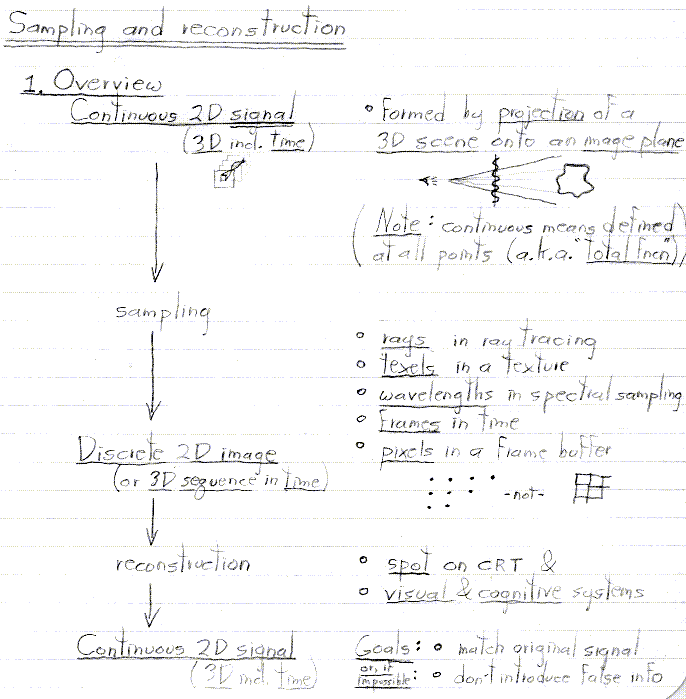 Sampling and reconstruction
1. Overview
Continuous 2D signal
(3D incl. time)
• Formed by projection of a
3D scene onto an image plane
(Note: continuous means defined
at all points (a.k.a. "total fncn"))
sampling
• rays in ray tracing
• texels in a texture
• wavelengths in spectral sampling
• frames in time
• pixels in a frame buffer
Discrete 2D image
(or 3D sequence in time)
-not-
reconstruction
• spot on CRT &
• visual & cognitive systems
Continuous 2D signal
(3D incl. time)
Goals: • match original signal
or, if
impossible: • don't introduce false info